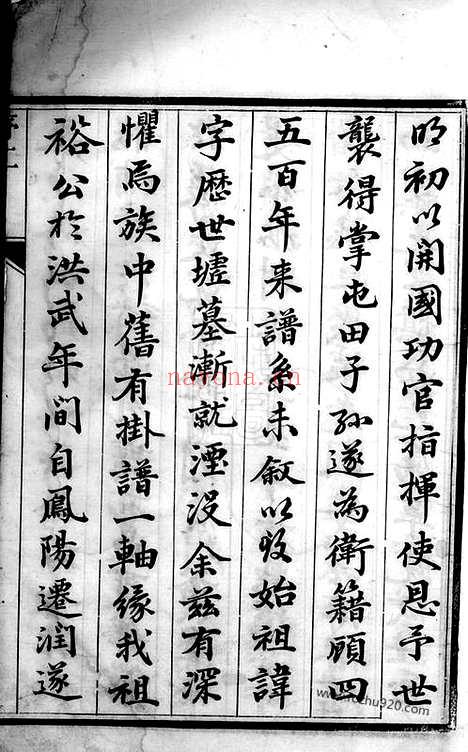 明初以開國功官指揮使恩予世
襲得掌屯田子孫遂為衛籍顧四
五百年来譜系未敘以致始祖諱
字歷世壚墓漸就湮没余兹有深
懼焉族中舊有掛譜一軸緣我祖
裕公於洪武年間自鳳陽遷潤遂
nayona.cn